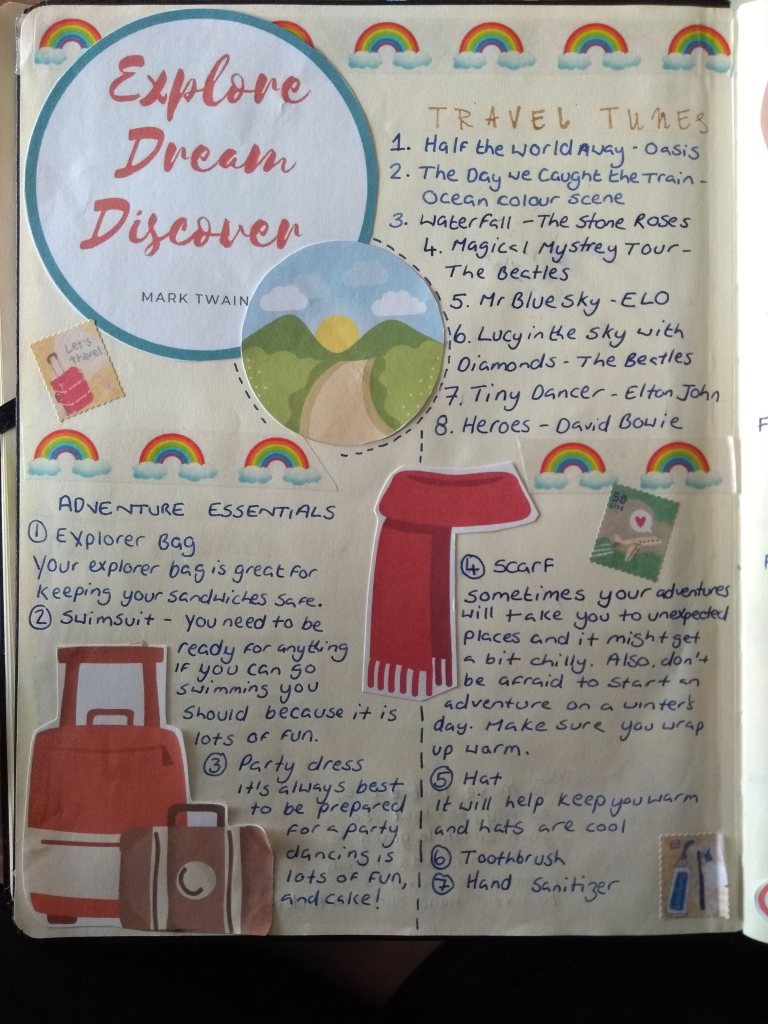 Explore
Dream
Discover
MARK TWAIN
Let's
travel
TRAVEL TUNES
1. Half the world Away - Oasis
2. The Day we Caught the Train -
Ocean colour scene
3. Waterfall - The Stone Roses
4. Magical Mystrey Tour -
The Beatles
5. Mr Blue Sky - ELO
6. Lucy in the sky with
Diamonds - The Beatles
7. Tiny Dancer - Elton John
8. Heroes - David Bowie
ADVENTURE ESSENTIALS
① Explorer Bag
Your explorer bag is great for
keeping your sandwiches safe.
② Swimsuit - you need to be
ready for anything
If you can go
swimming you
should because it is
lots of fun.
③ Party dress
it's always best
to be prepared
for a party
dancing is
lots of fun,
and cake!
50
LIRE
④ Scarf
sometimes your adventures
will take you to unexpected
places and it might get
a bit chilly. Also, don't
be afraid to start an
adventure on a winter's
day. Make sure you wrap
up warm.
⑤ Hat
It will help keep you warm
and hats are cool
⑥ Toothbrush
⑦ Hand Sanitizer